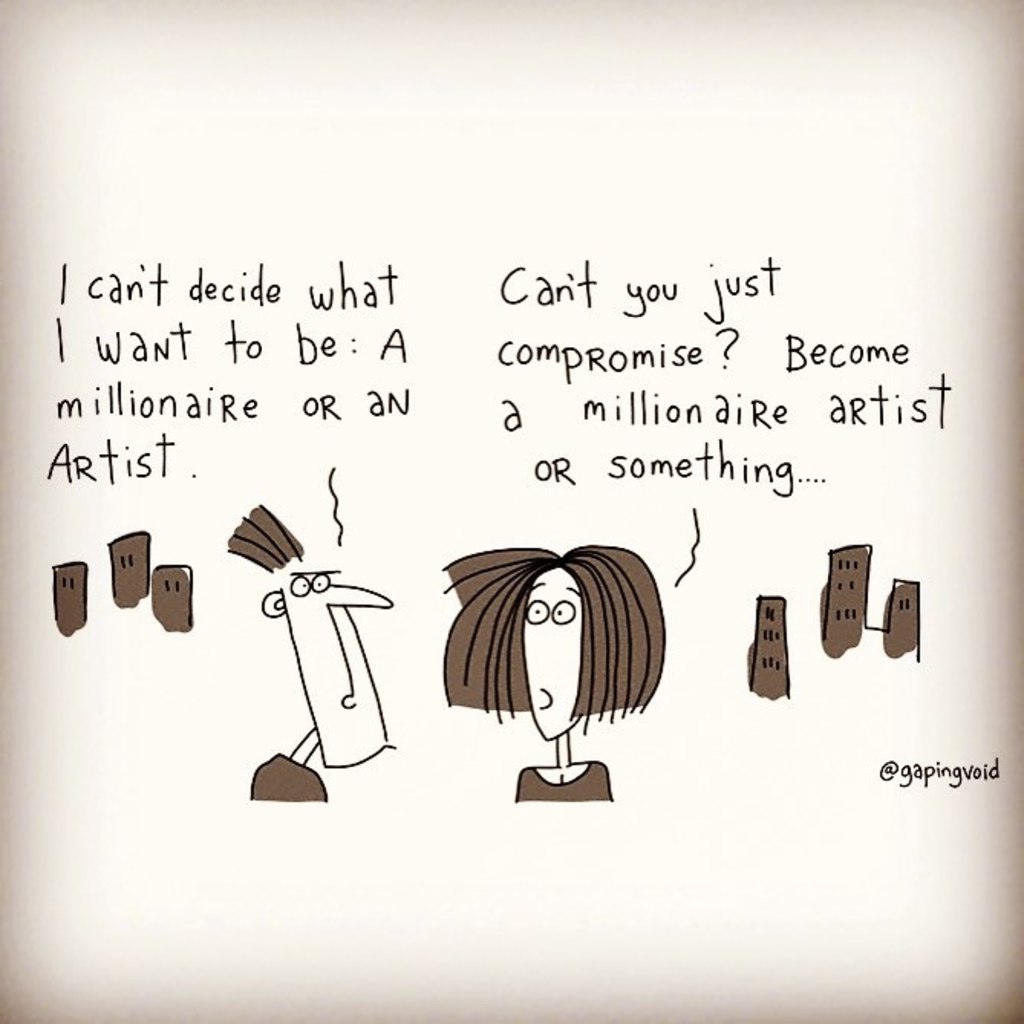 I can't decide what
I want to be: A
millionaire OR an
Artist.
Can't you just
compromise? Become
a millionaire artist
OR something....
@gapingvoid